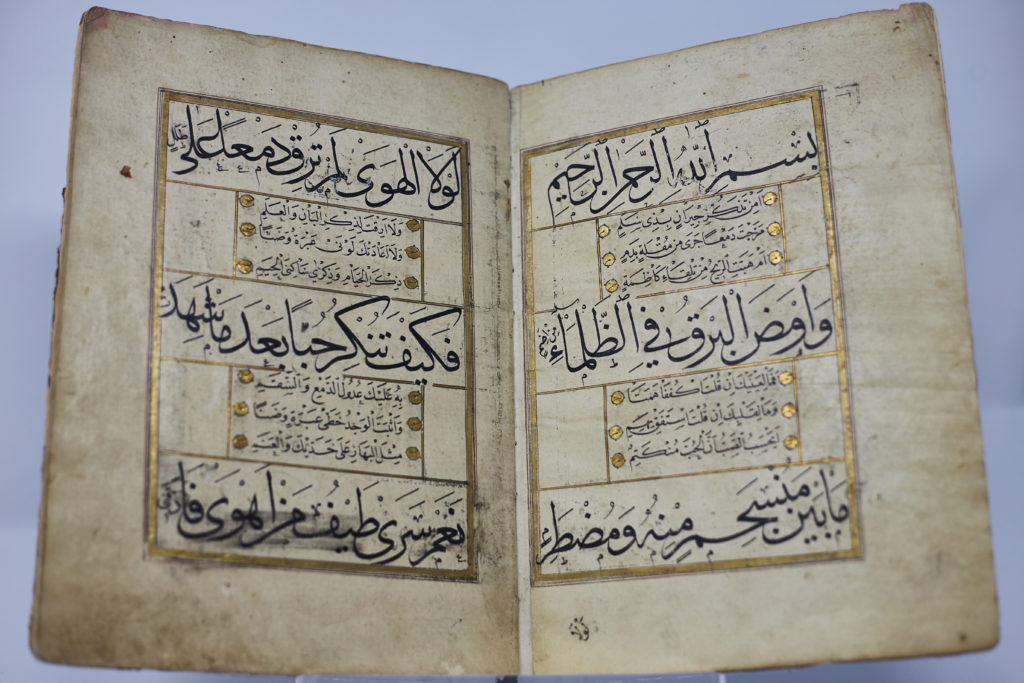 بِسْمِ اللهِ الرَّحْمٰنِ الرَّحِيْمِ
اَمِنْ تَذَكُّرِ جِيرَانٍ بِذِي سَلَمٍ
مَزَجْتَ دَمْعًا جَرَى مِنْ مُقْلَةٍ بِدَمِ
اَمْ هَبَّتِ الرِّيحُ مِنْ تِلْقَاءِ كَاظِمَةٍ
وَاَوْمَضَ الْبَرْقُ فِي الظَّلْمَاءِ مِنْ اِضَمِ
فَمَا لِعَيْنَيْكَ اِنْ قُلْتَ اكْفُفَا هَمَتَا
وَمَا لِقَلْبِكَ اِنْ قُلْتَ اسْتَفِقْ يَهِمِ
اَيَحْسَبُ الصَّبُّ اَنَّ الْحُبَّ مُنْكَتِمٌ
مَا بَيْنَ مُنْسَجِمٍ مِنْهُ وَمُضْطَرِمِ
لولا
لَوْلَا الْهَوَى لَمْ تُرِقْ دَمْعًا عَلَى طَلَلٍ
وَلَا اَرِقْتَ لِذِكْرِ الْبَانِ وَالْعَلَمِ
وَلَا اَعَادَتْكَ لَوْنَيْ عَبْرَةٍ وَضَنًا
ذِكْرَى الْخِيَامِ وَذِكْرَى سَاكِنِي الْخِيَمِ
فَكَيْفَ تُنْكِرُ حُبًّا بَعْدَ مَا شَهِدَتْ
بِهِ عَلَيْكَ عُدُولُ الدَّمْعِ وَالسَّقَمِ
وَاَثْبَتَ الْوَجْدُ خَطَّيْ عَبْرَةٍ وَضَنًا
مِثْلَ الْبَهَارِ عَلَى خَدَّيْكَ وَالْعَنَمِ
نَعَمْ سَرَى طَيْفُ مَنْ اَهْوَى فَاَرَّقَنِي